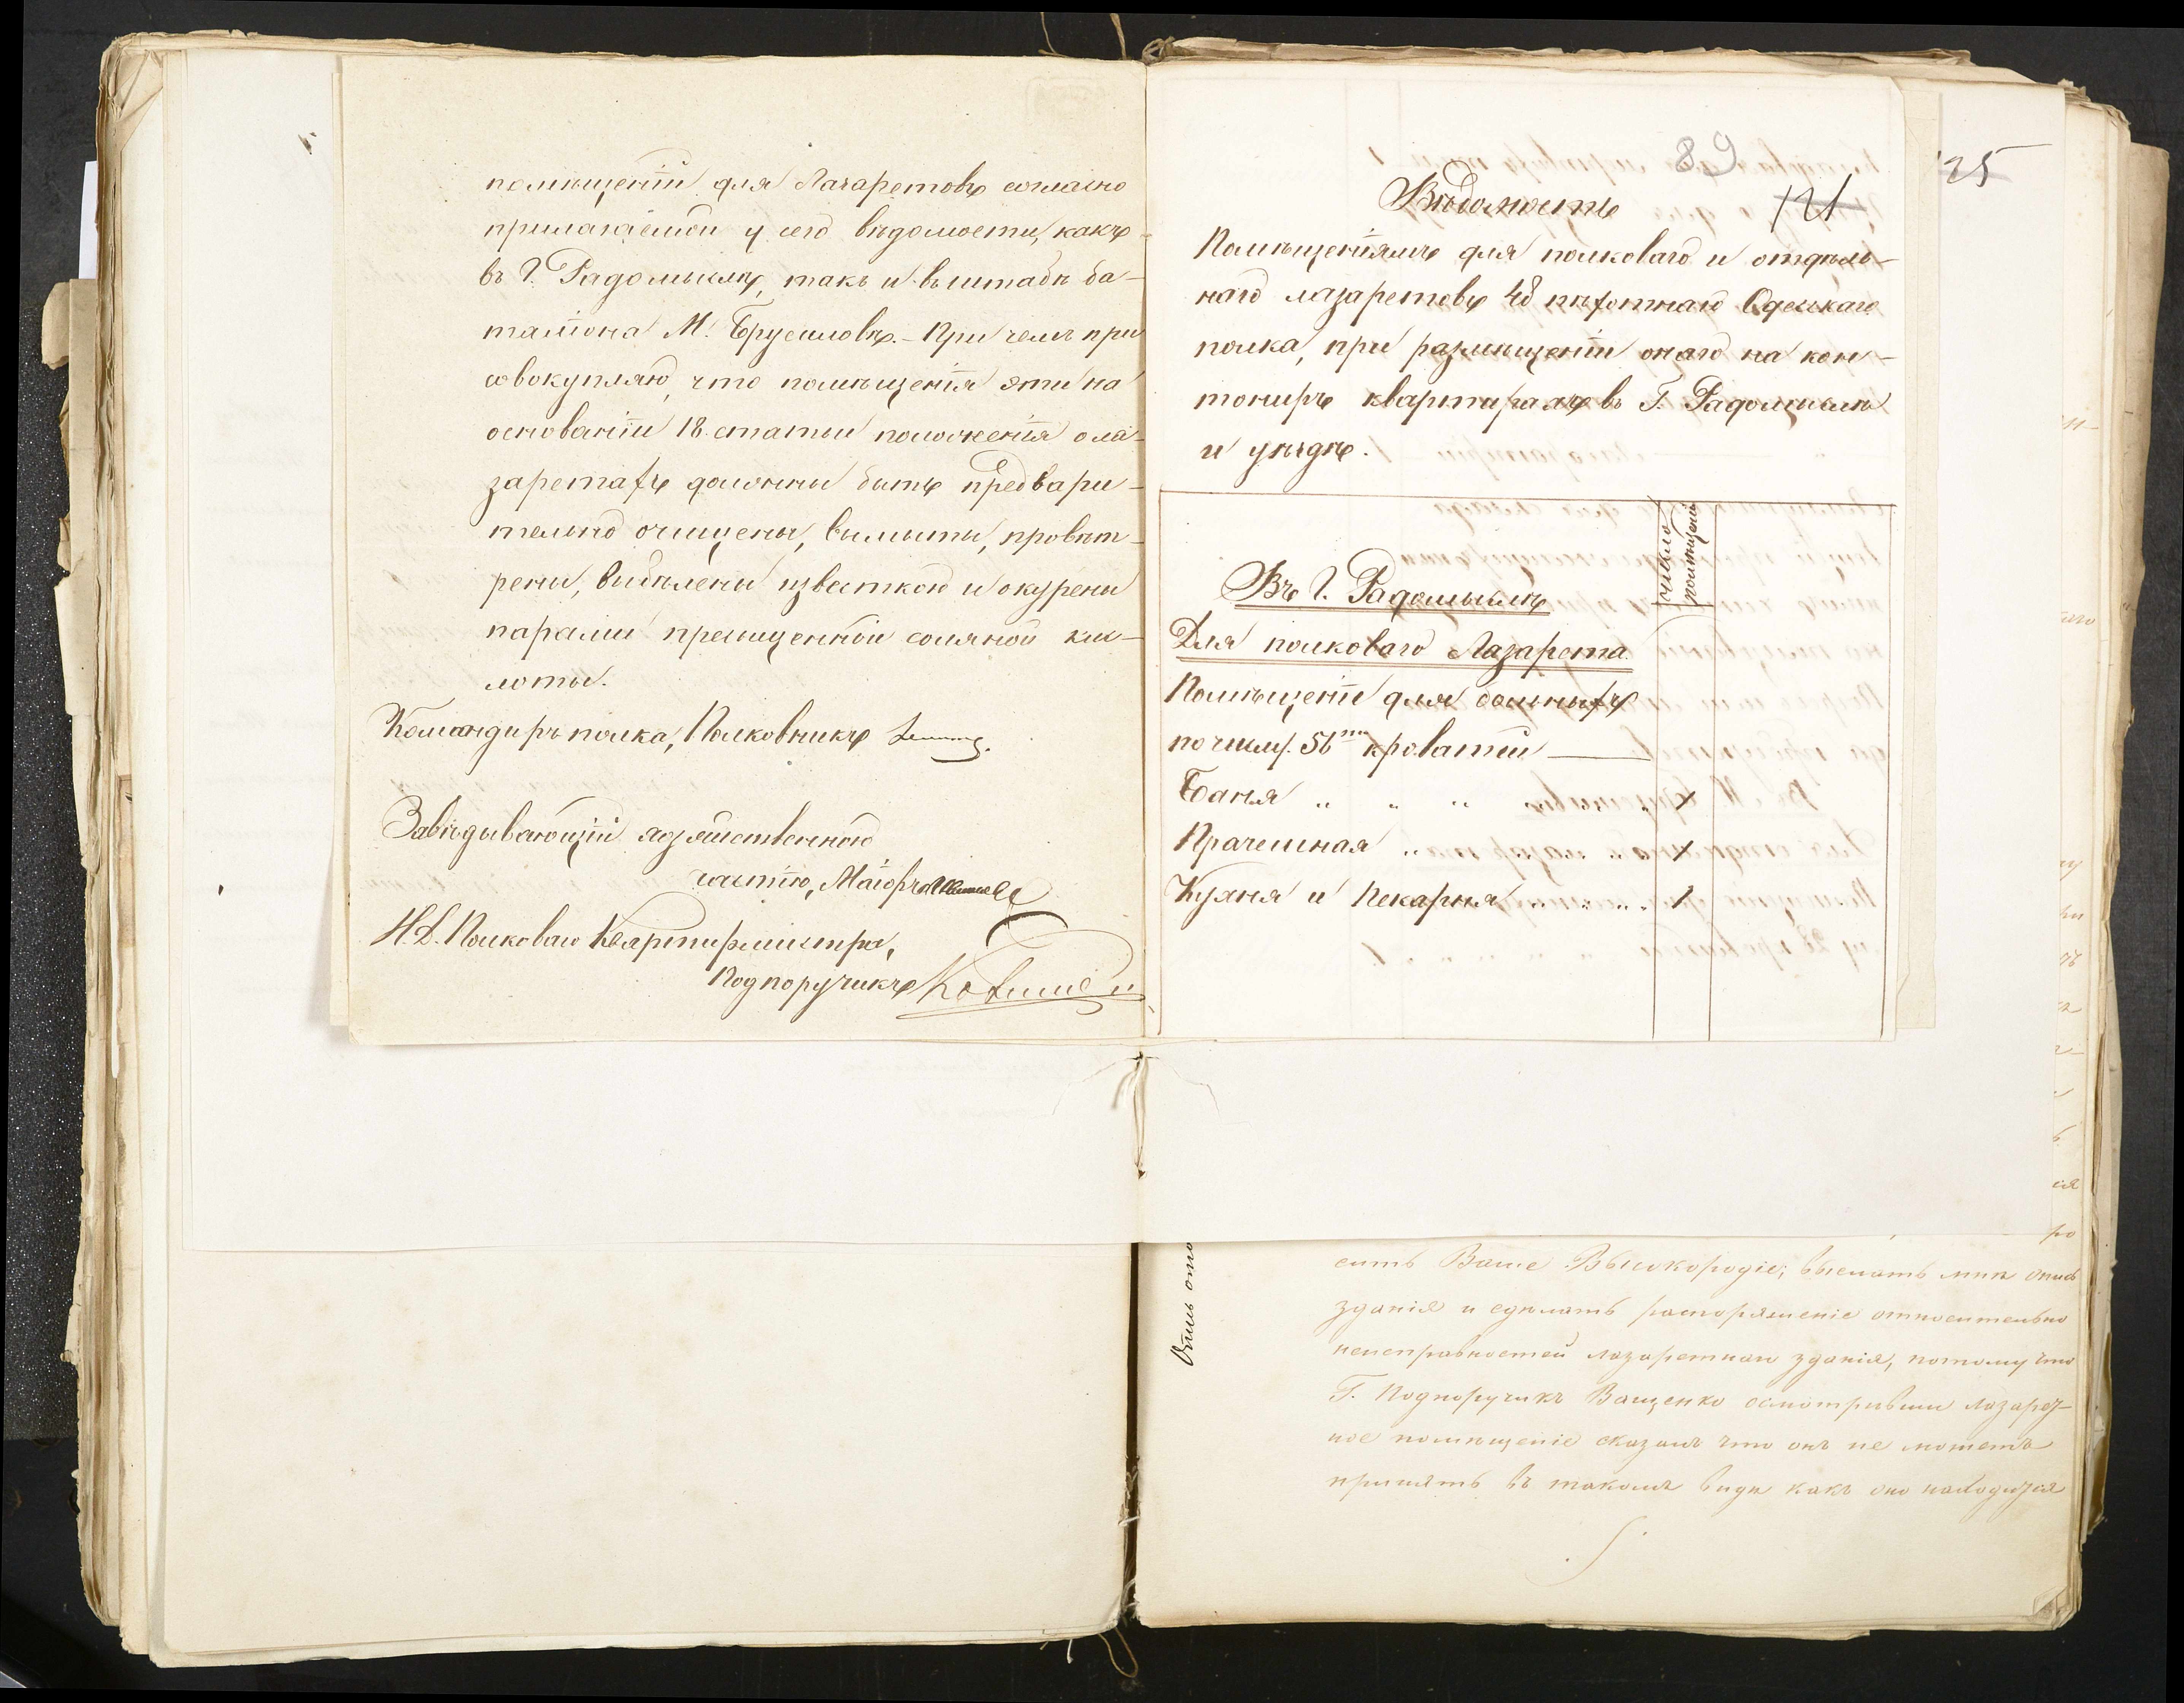 помѣщеніи для Лазаретовъ согласно
прилагаемой у сего вѣдомости, какъ
въ Г. Радомыслѣ, такъ и въ штабѣ ба-
таліона М. Брусиловѣ. - При чемъ при
совокупляю, что помѣщенія эти на
основаніи 18 статьи положенія о ла-
заретахъ должны быть предвари-
тельно очищены, вымыты, провѣт-
рены, выбѣлены известкою и окурены
парами прещенной соляной кис-
лоты.
Командиръ полка, Полковникъ
Завѣдывающій хозяйственною
частію, Маіоръ
И. Д. Полковаго Квартирмистра,
Подпоручикъ
89
121
125
Вѣдомость
Помѣщеніямъ для полковаго и отдѣль-
наго лазаретовъ 48 пѣхотнаго Одесскаго
полка, при размѣщеніи онаго на кон-
тониръ квартирахъ въ Г. Радомыслѣ
и уѣздѣ.
число помѣщеній
Въ Г. Радомыслѣ
Для полковаго Лазарета.
Помѣщеніе для больныхъ
по числу 56ти кроватей —
Баня „ „ „ „ 1
Прачешная „ „ 1
Кухня и Пекарня „ „ 1
сить Ваше Высокородіе, выслать мнѣ опись
зданія и сдѣлать распоряженіе относительно
неисправностей лазаретнаго зданія, потому что
Г. Подпоручикъ Ващенко осмотрѣвши лазарет-
ное помѣщеніе сказалъ что онъ не можетъ
принять въ такомъ видѣ какъ оно находится